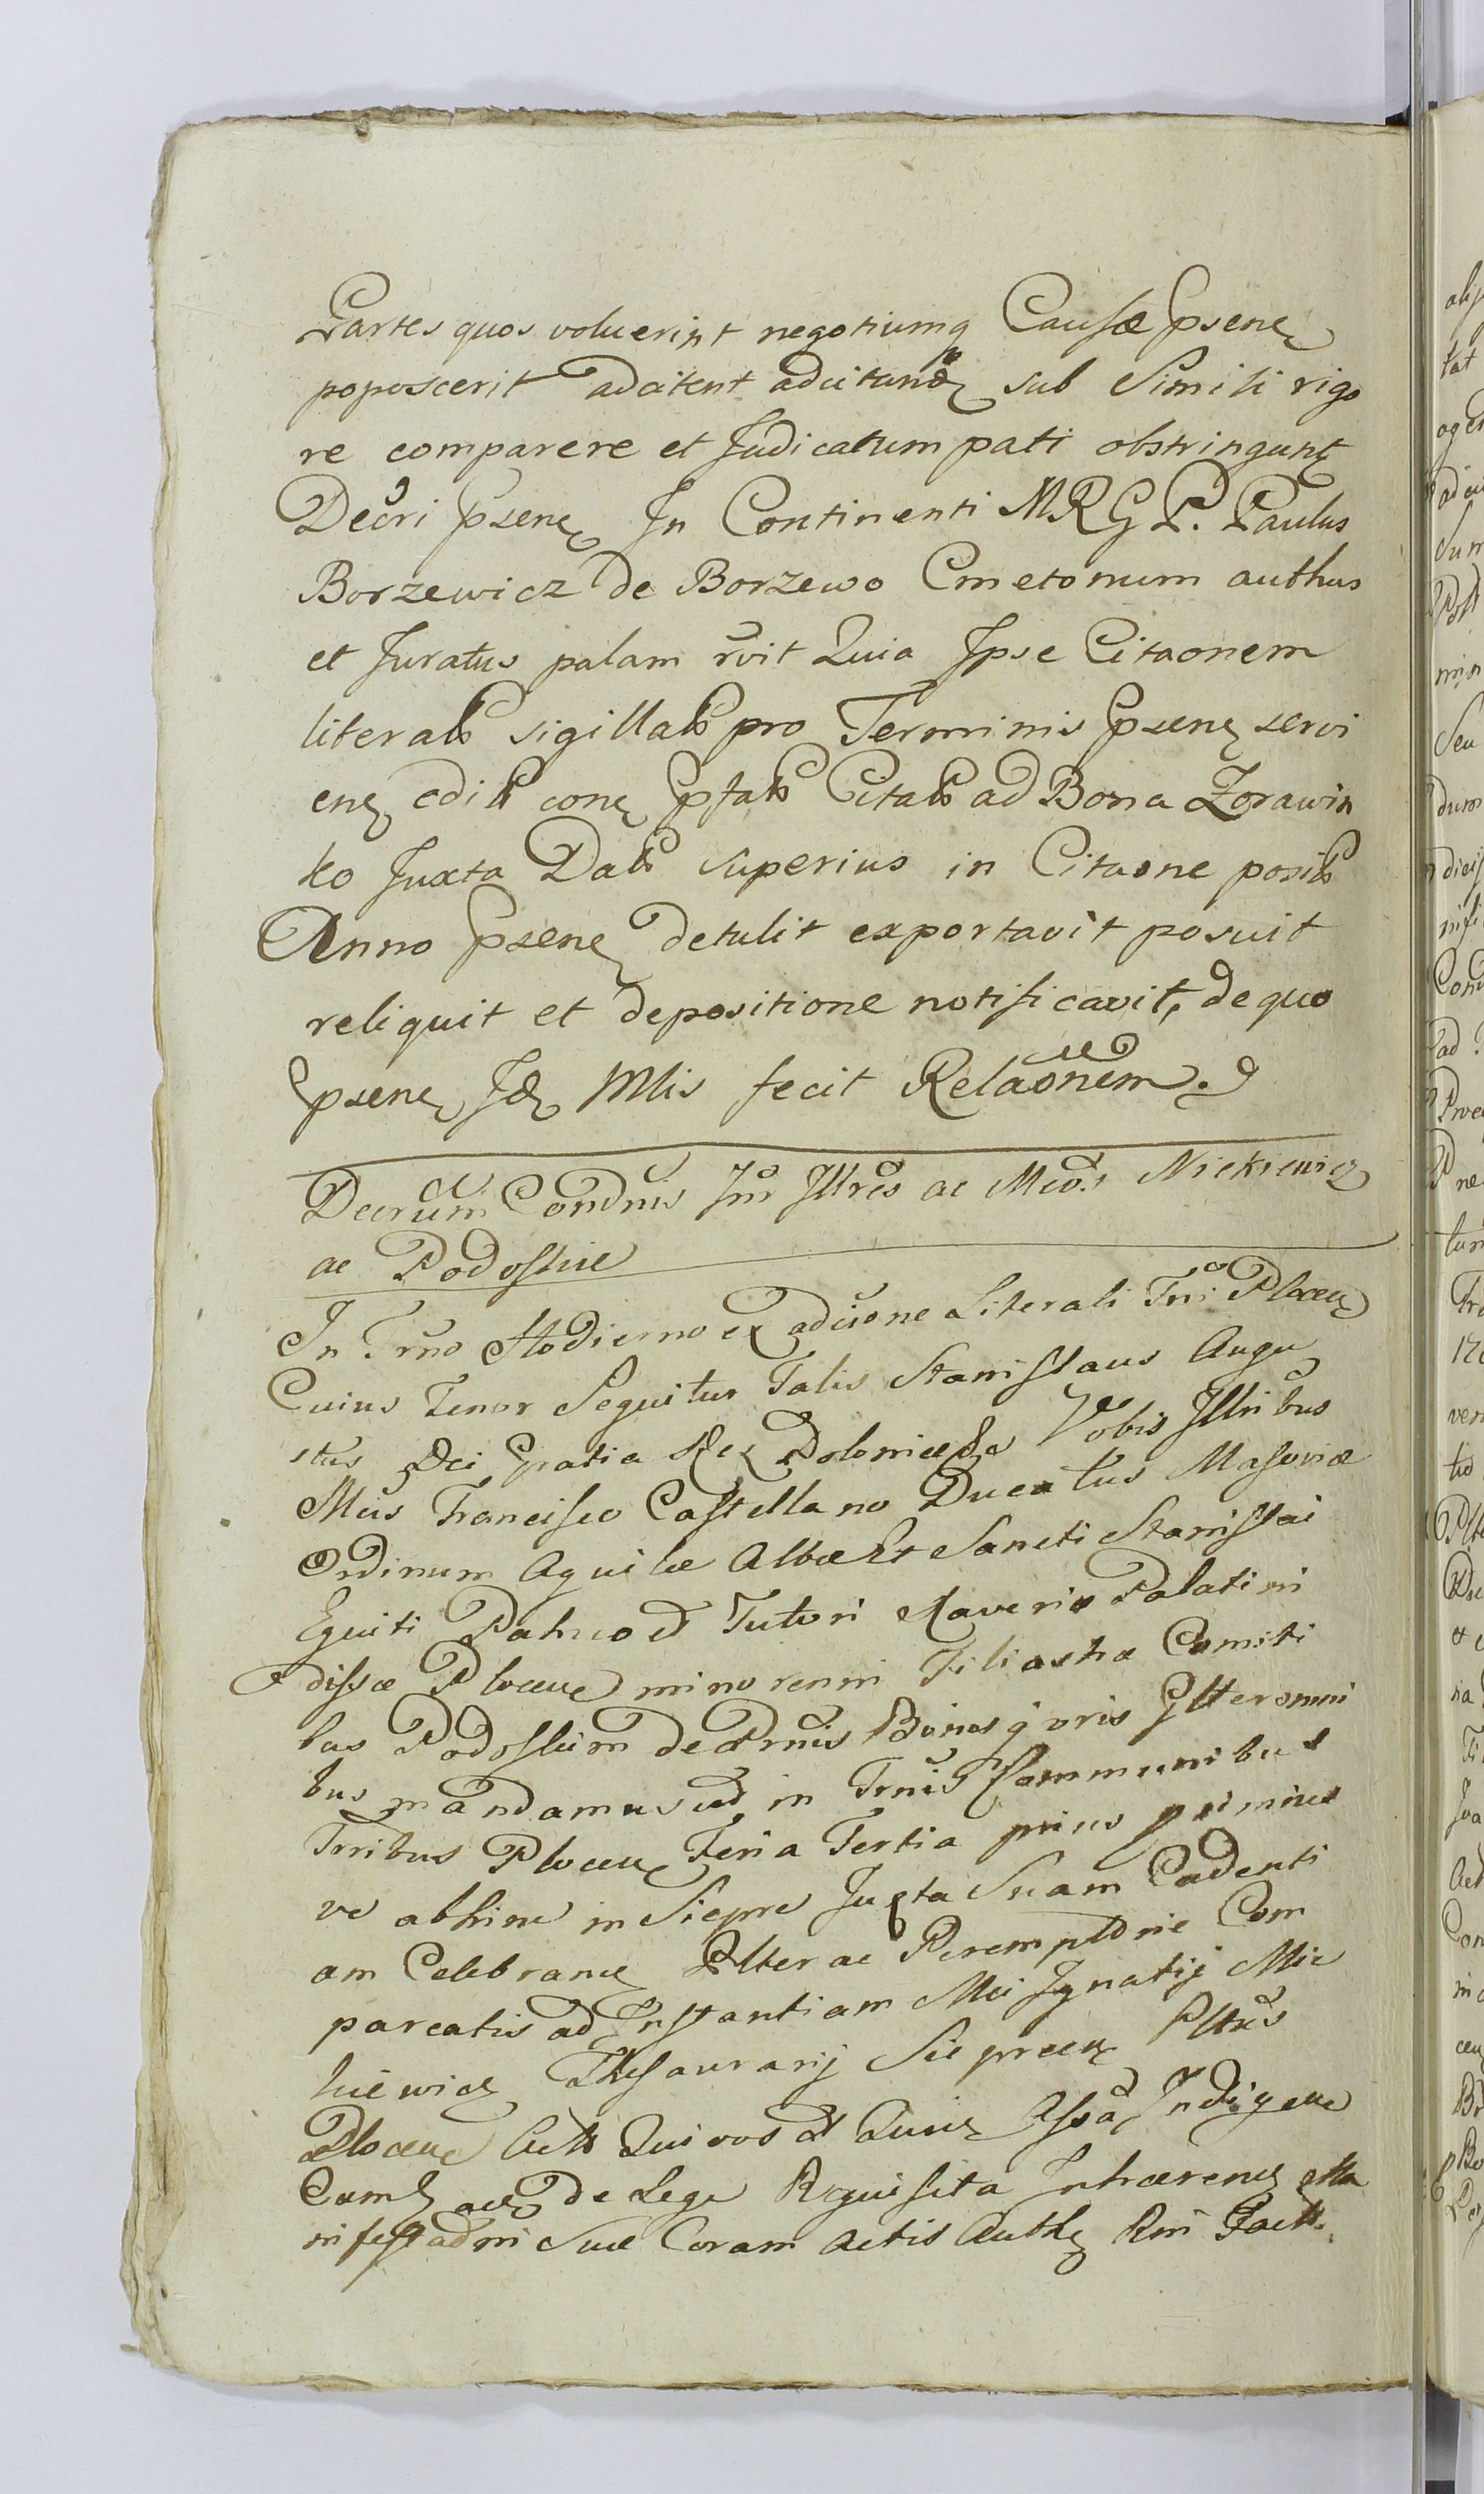 Partes quos voluerint negotiumq Causæ Psene
poposcerit adcitent adcitand sub Simili rigo
re comparere et Judicatum pati obstringunt
Decri Psene In Continenti MRGP. Paulus
Borzewicz de Borzewo Cmetonum authus
et Juratus palam rvit Quia Ipse Citaonem
literalb sigillatb pro Terminis Psene servi
ene edit cone Pfatb Citatb ad Bona Zorawin
ko Juxta Datb superius in Citaone positb
Anno Psene detulit exportavit posuit
reliquit et depositione notificavit, de quo
Psene Id Mlis fecit Relaonem.
Decrum Condnis Inr Illres ac Mcos Nickiewicz
ac Podoskie
In Trno Hodierno ex adcione Literali Tri Plocen
Cuius Tenor Sequitur Talis Stanislaus Augu
stus Dei Gratia Rex Poloniæ Vobis Illribus
Mcis Francisco Castellano Ducatus Masoviæ
Ordinum Aquilæ Albæ Et Sancti Stanislai
Equiti Patruo et Tutori Xaveriæ Palatini
dissæ Plocen minorenni Filiastræ Comiti
bus Podoskim de Prnis Bonisq oris Gltr omni
bus mandamus ut in Trnis Communibus
Trribus Plocen Feria Tertia prius primius
ve abhinc in Sieprc Juxta Suam Cadenti
am Celebrane Pltr ac Peremptorie Com
pareatis ad Instantiam Mci Ignatij Mic
kiewicz Thesaurarij Sieprcen Pltrs
Plocen Actb Qui vos ad Assa Indigene
Comb ac de Lege Requisita Inhærene Ma
nifestaoni Suæ Coram Actis Authe Rni Factb.